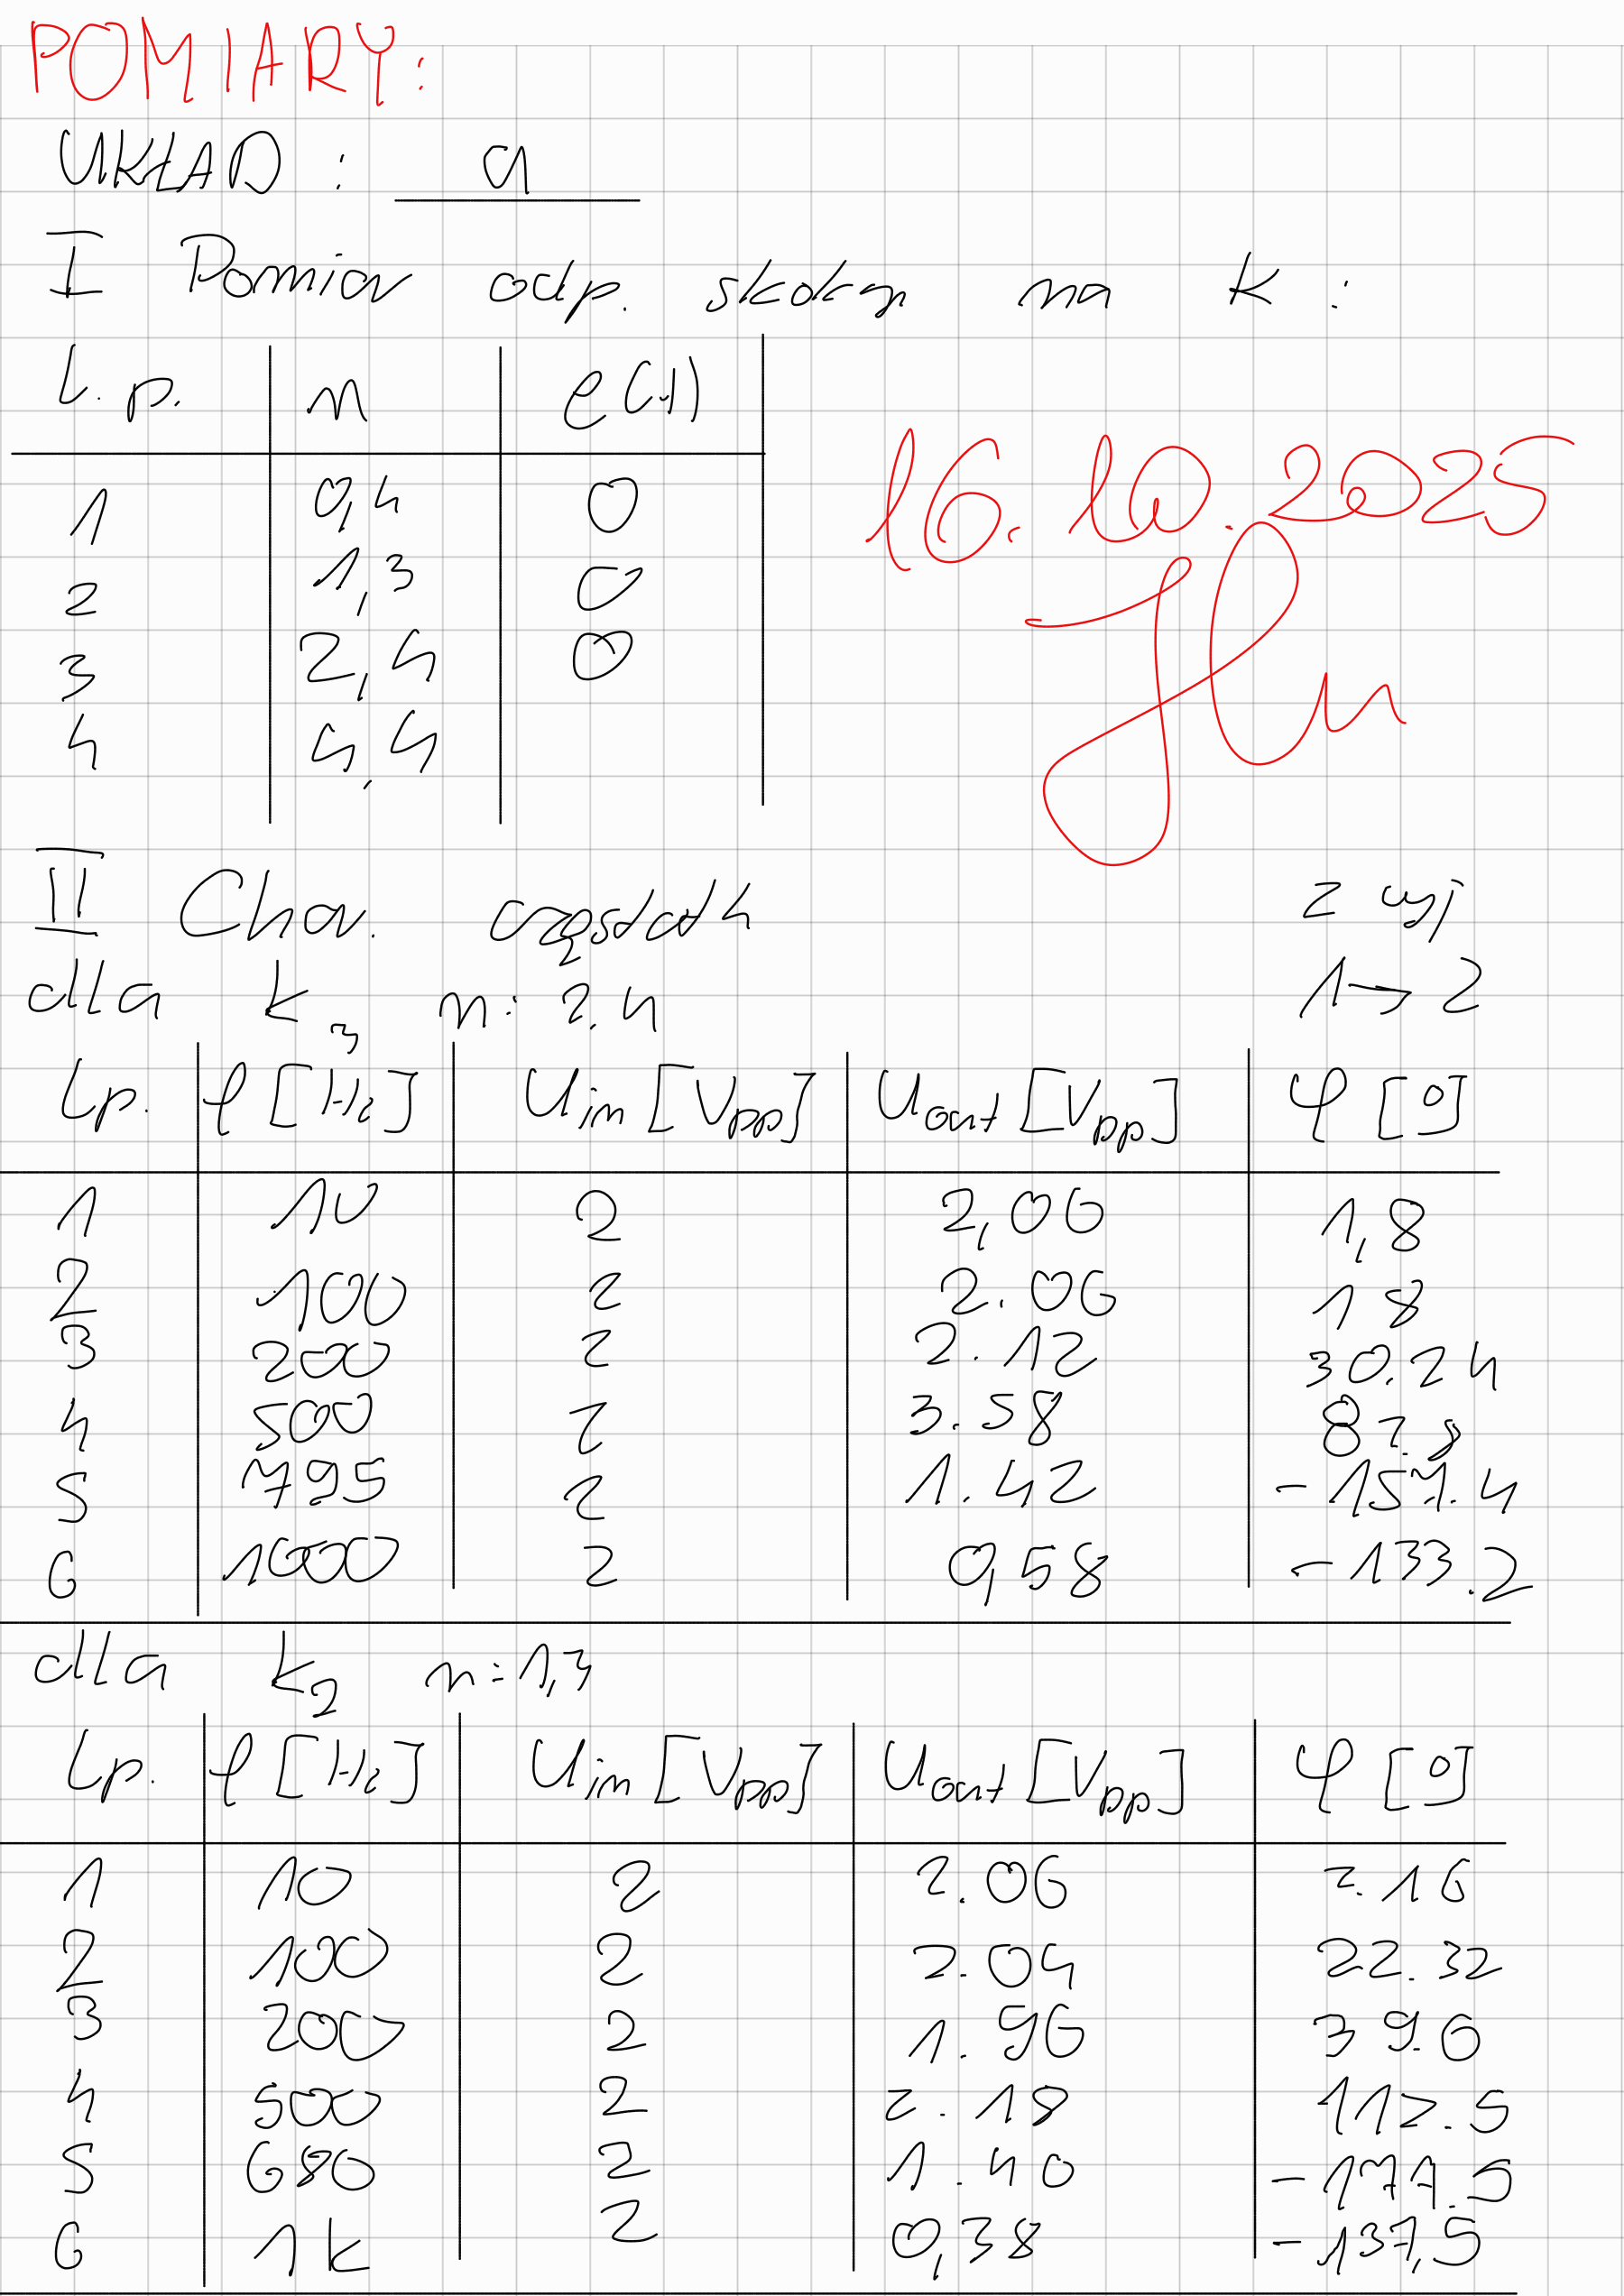 POMIARY:
UKŁAD: a
I Pomiar odp. skokowy na K:
L.p. n e(1)
1 0,4 0
2 1,3 0
3 2,4 0
4 4,4
16.10.2025
II Char. częstotl z wyj
dla k3 n: 2.4 1→2
Lp. f [Hz] Uin [Vpp] Uout [Vpp] φ [°]
1 10 2 2,06 1,8
2 100 2 2.06 18
3 200 2 2.12 30.24
4 500 2 3.58 87.8
5 795 2 1.42 -157.4
6 1000 2 0,58 -133.2
dla k2 n=1,3
Lp. f [Hz] Uin [Vpp] Uout [Vpp] φ [°]
1 10 2 2.06 2.16
2 100 2 2.04 22.32
3 200 2 1.96 39.6
4 500 2 2.18 117.5
5 680 2 1.40 -171.5
6 1k 2 0,38 -137,5